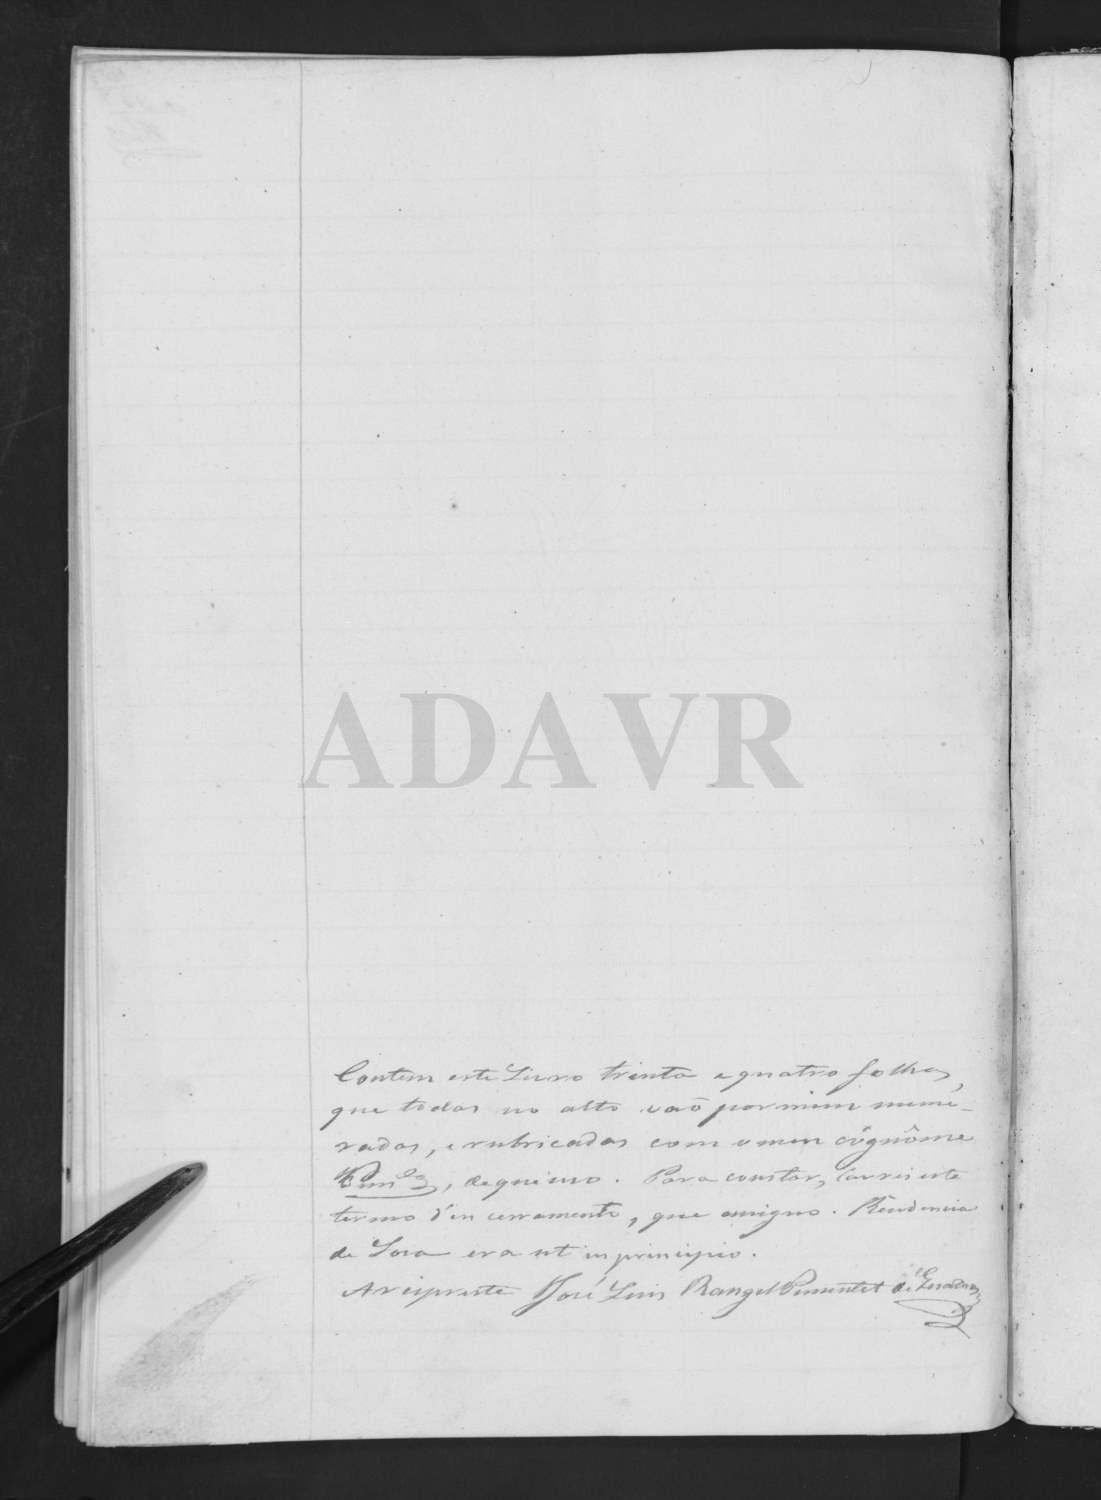 ADAVR
Contem este Livro trinta e quatro folhas,
que todas no alto vaõ por mim nume-
radas, e rubricadas com o meu cógnôme
, de que uso. Para constar, lavrei este
termo d'en cerramento, que assigno. Residencia
de era ut in principio.
Arcipreste José Luis Rangel Pimentel de